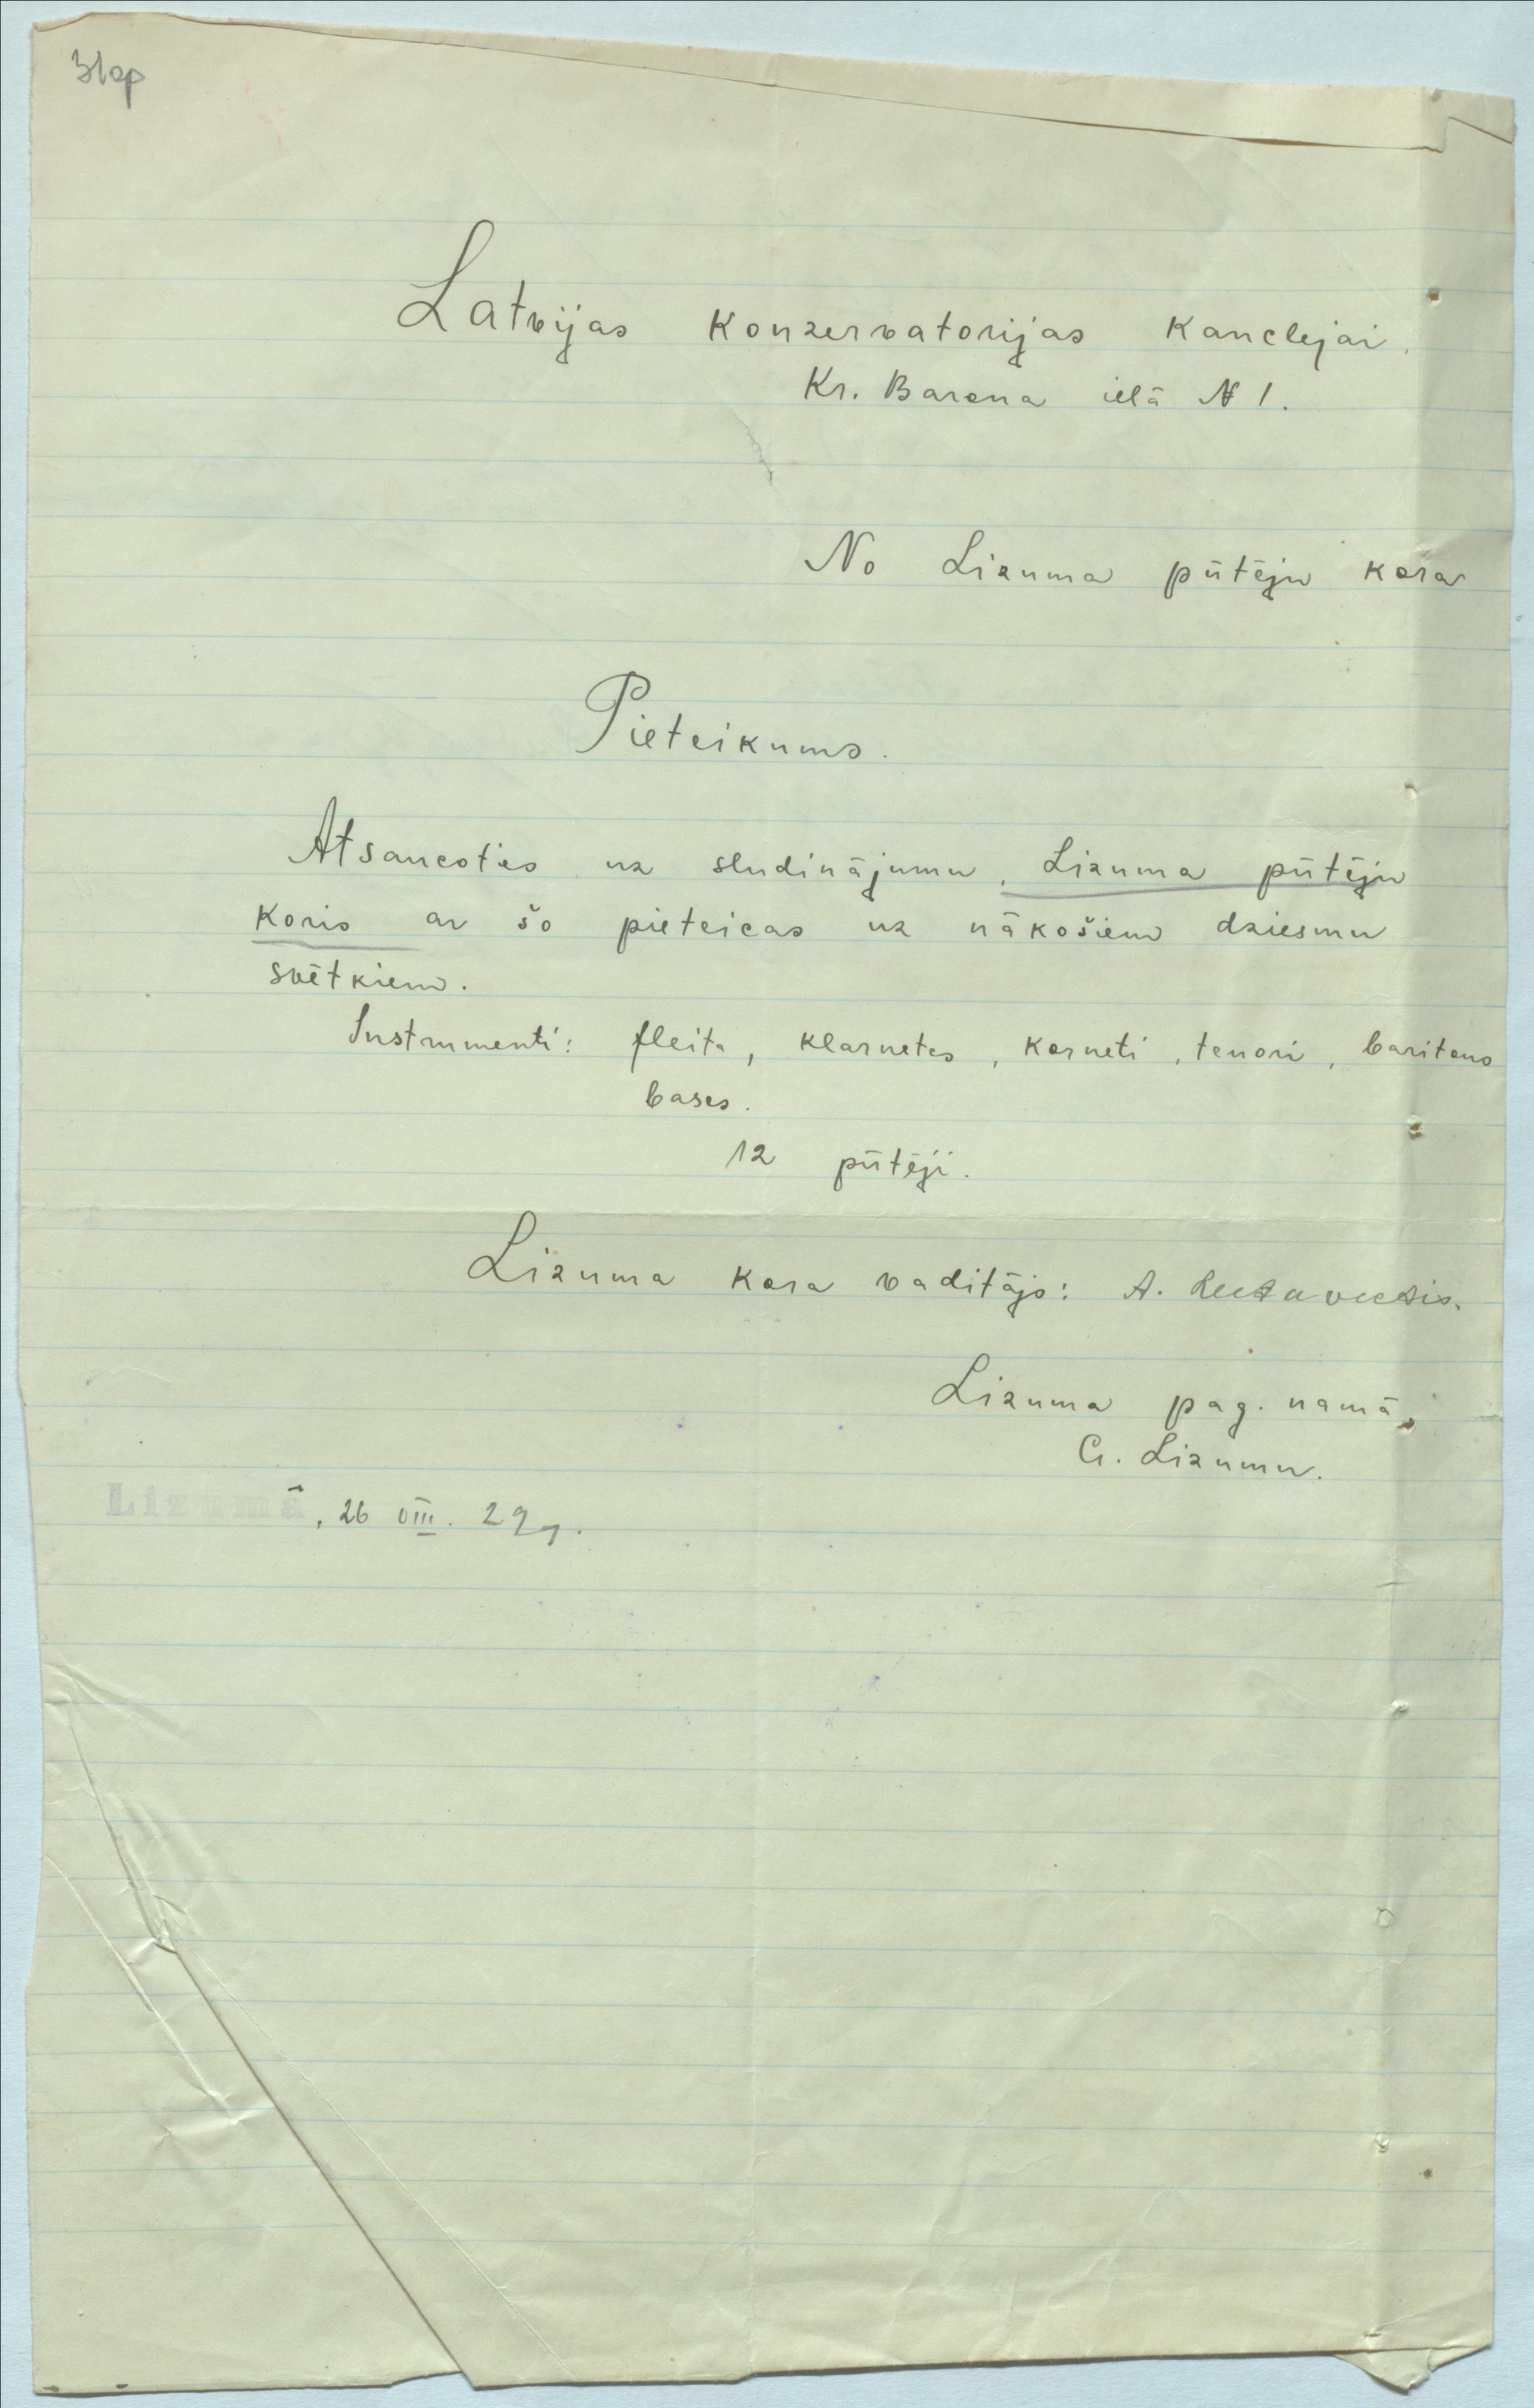 Latvijas Konzervatorijas Kanclejai.
Kr. Barona ielā № 1.
No Lizuma pūtēju kora
Pieteikums.
Atsaucoties uz sludinājumu, Lizuma pūtēju
koris ar šo pieteicas uz nākošiem dziesmu
svētkiem.
Instrumenti: fleita, klarnetes, korneti, tenori, baritons
bases.
12 pūtēji.
Lizuma kora vadītājs: A.
Lizuma pag. namā,
C. Lizumu.
Lizumā, 26 VIII. 29 g.